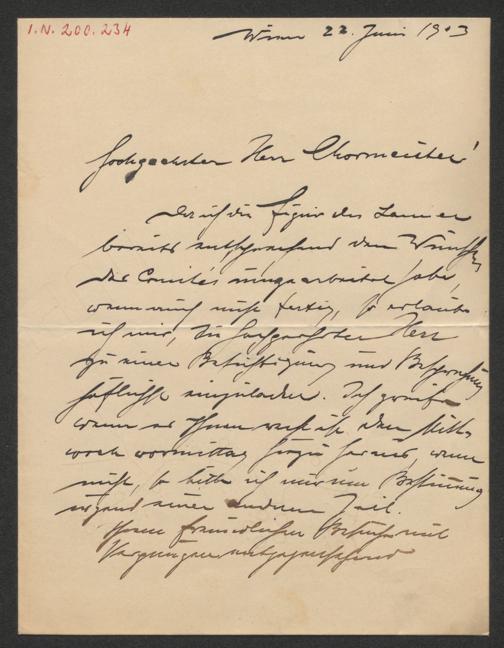 I.N. 200.234
Wien 22. Juni 1903
Hochgeehrter Herr Chormeister!
Da ich die Figur des Lanner
bereits entsprechend dem Wunsche
des Comités umgearbeitet habe,
wenn auch nicht fertig, so erlaube
ich mir, Sie hochgeehrter Herr
zu einer Besichtigung und Besprechung
höflichst einzuladen. Ich greife
wenn es Ihnen recht ist den Mitt-
woch vormittag hiezu heraus, wenn
nicht, so bitte ich mir um Bestimmung
irgend einer andern Zeit.
Ihrem freundlichen Besuche mit
Vergnügen entgegensehend